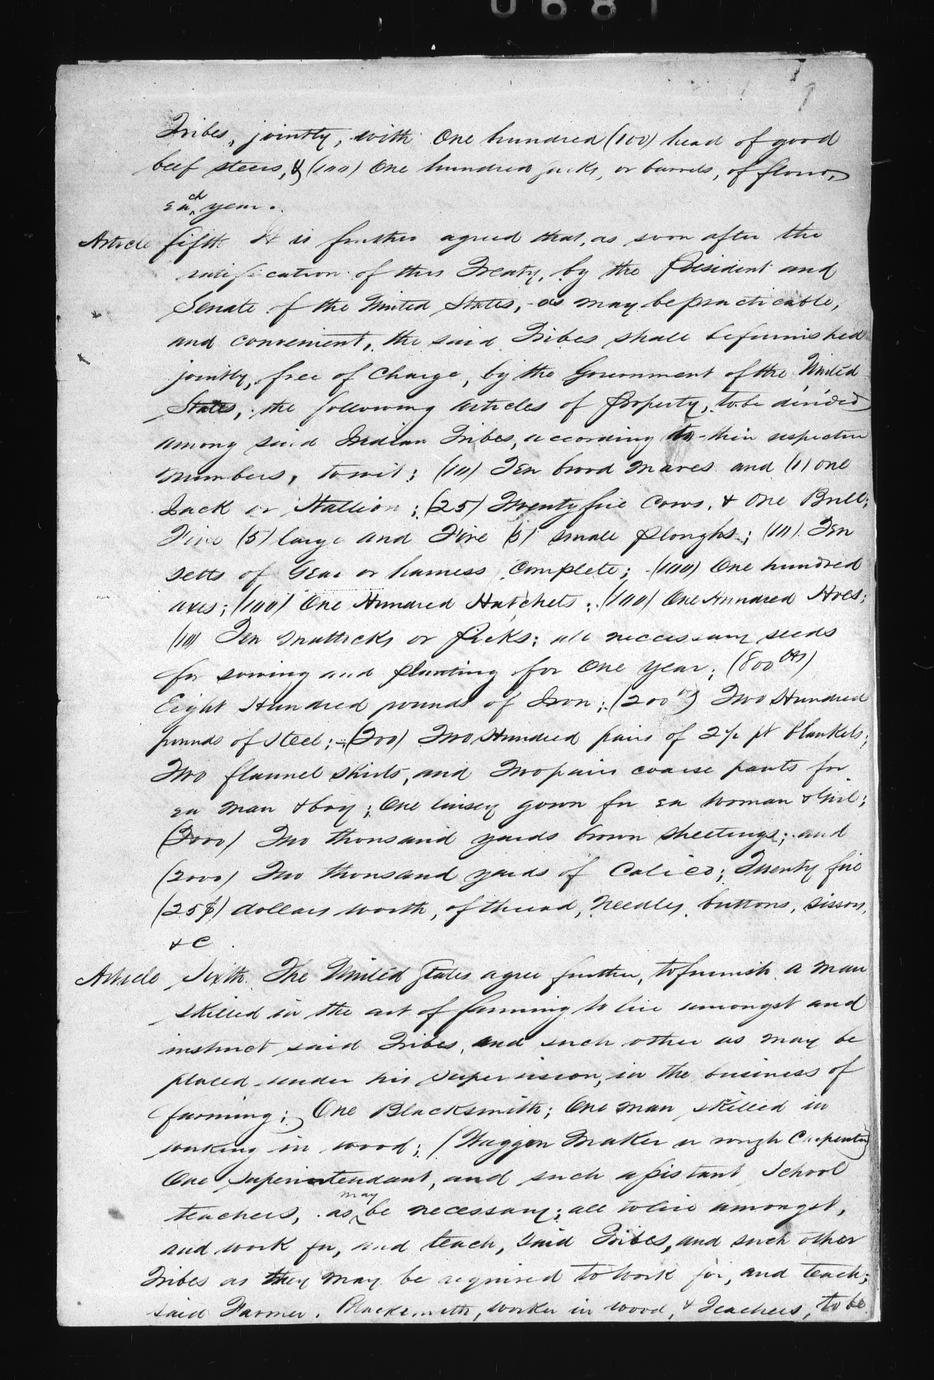 0681
7
Tribes, jointly, with One hundred (100) head of good
beef steers, & (100) One hundred sacks, or barrels, of flour,
each year.
Article fifth It is further agreed that, as soon after the
ratification of this Treaty, by the President and
Senate of the United States, as may be practicable,
and convenient, the said Tribes shall be furnished
jointly, free of Charge, by the Government of the United
States, the following articles of Property, to be divided
among said Indian Tribes, according to their respective
numbers, towit; (10) Ten brood mares and (1) one
Jack or Stallion; (25) Twenty five Cows, & One Bull;
Five (5) large and Five (5) small Ploughs; (10) Ten
setts of Gear or harness complete; (100) One hundred
axes; (100) One Hundred Hatchets; (100) One Hundred Hoes;
(10) Ten Mattocks or Picks; all necessary seeds
for sowing and planting for One year; (800 lbs)
Eight Hundred pounds of Iron; (200 lbs) Two Hundred
pounds of Steel; (200) Two Hundred pairs of 2½ pt blankets;
Two flannel shirts, and Two pairs coarse pants for
ea man & boy; One linsey gown for ea woman & Girl;
(2000) Two thousand yards brown sheetings; and
(2000) Two thousand yards of Calico; Twenty five
(25$) dollars worth, of thread, Needles, buttons, sissors,
&C
Article Sixth. The United States agree further, to furnish a man
skilled in the art of farming to live amongst and
instruct said Tribes, and such other as may be
placed under his supervision, in the business of
farming; One Blacksmith; One man skilled in
working in wood; (Waggon Maker or rough Carpenter)
One Superintendant, and such assistant School
teachers, as may be necessary; all to live amongst,
and work for, and teach, said Tribes, and such other
Tribes as they may be required to work for, and teach;
said Farmer, Blacksmith, worker in wood, & Teachers, to be